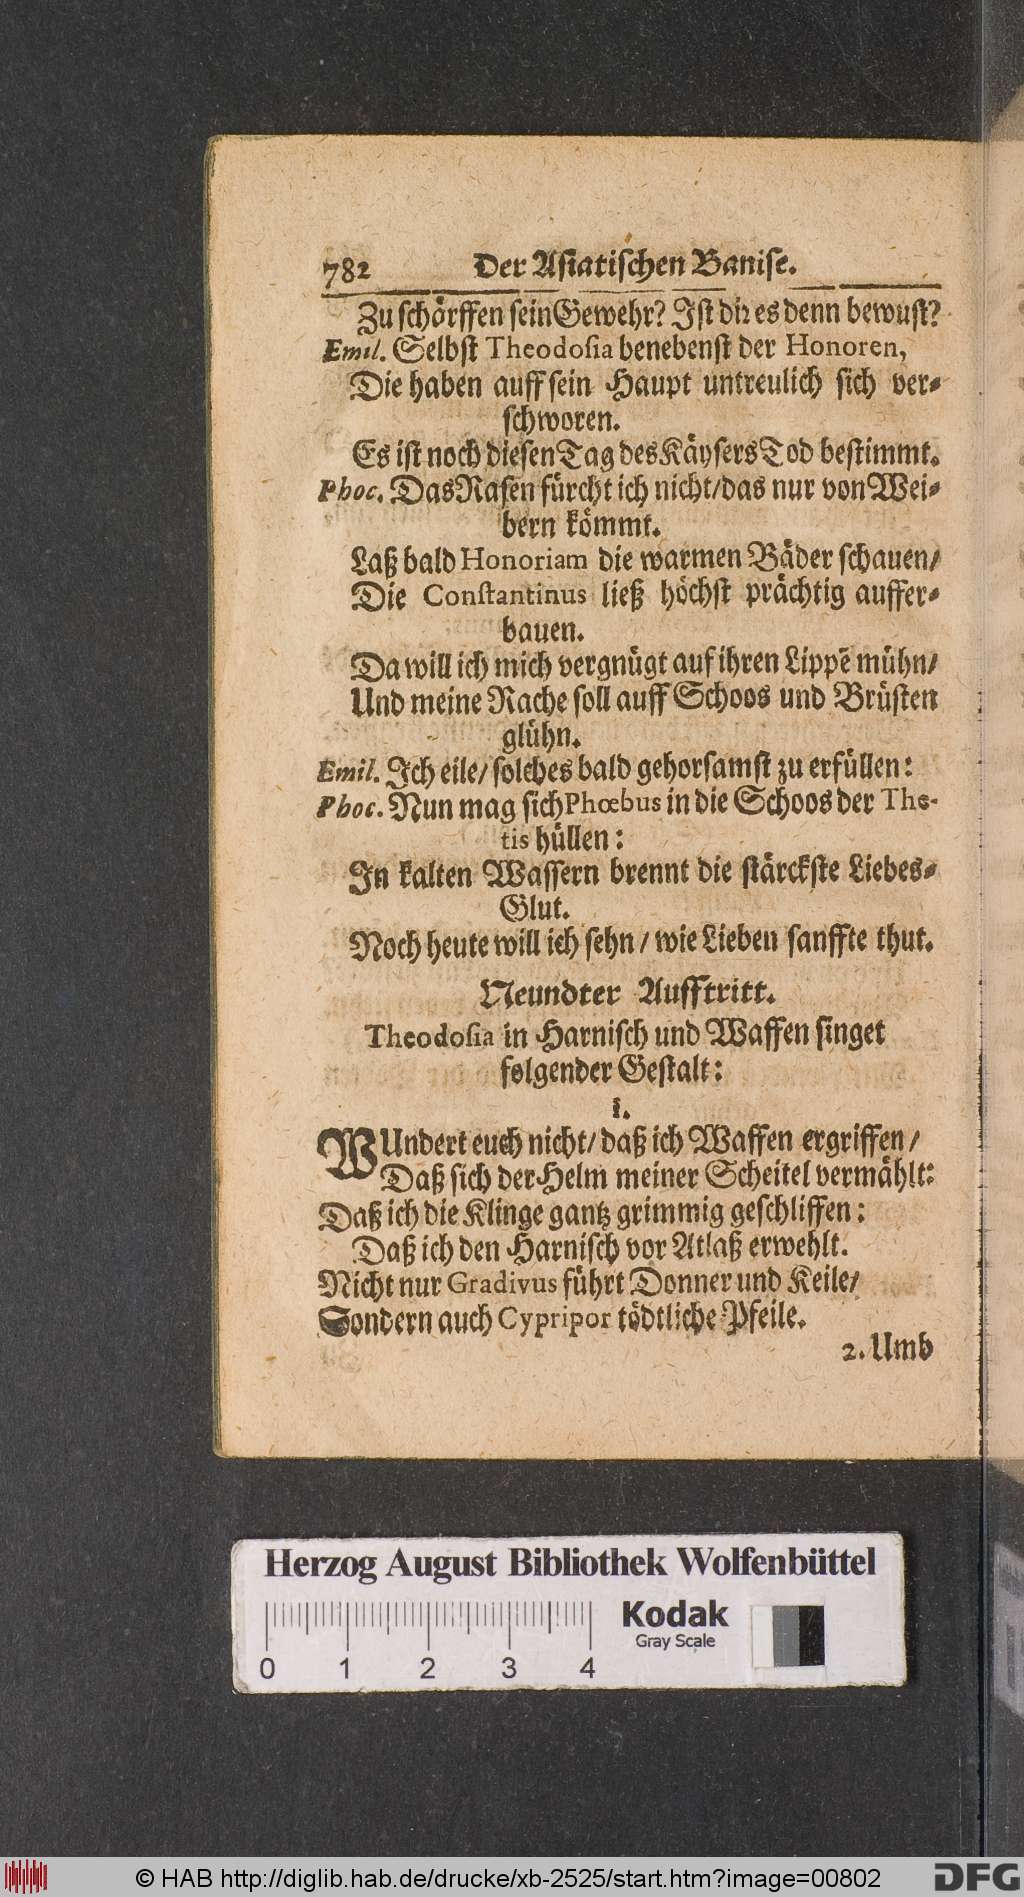 782 Der Asiatischen Banise.
Zu schörffen sein Gewehr? Ist dir es denn bewust?
Emil. Selbst Theodosia benebenst der Honoren,
Die haben auff sein Haupt untreulich sich ver-
schworen.
Es ist noch diesen Tag des Käysers Tod bestimmt.
Phoc. Das Rasen fürcht ich nicht/ das nur von Wei-
bern kömmt.
Laß bald Honoriam die warmen Bäder schauen/
Die Constantinus ließ höchst prächtig auffer-
bauen.
Da will ich mich vergnügt auf ihren Lippẽ mühn/
Und meine Rache soll auff Schoos und Brüsten
glühn.
Emil. Ich eile/ solches bald gehorsamst zu erfüllen:
Phoc. Nun mag sich Phœbus in die Schoos der The-
tis hüllen:
In kalten Wassern brennt die stärckste Liebes-
Glut.
Noch heute will ich sehn/ wie Lieben sanffte thut.
Neundter Aufftritt.
Theodosia in Harnisch und Waffen singet
folgender Gestalt:
1.
WUndert euch nicht/ daß ich Waffen ergriffen/
Daß sich der Helm meiner Scheitel vermählt:
Daß ich die Klinge gantz grimmig geschliffen:
Daß ich den Harnisch vor Atlaß erwehlt.
Nicht nur Gradivus führt Donner und Keile/
Sondern auch Cypripor tödtliche Pfeile.
2. Umb
Herzog August Bibliothek Wolfenbüttel
Kodak
Gray Scale
0 1 2 3 4
© HAB http://diglib.hab.de/drucke/xb-2525/start.htm?image=00802
DFG